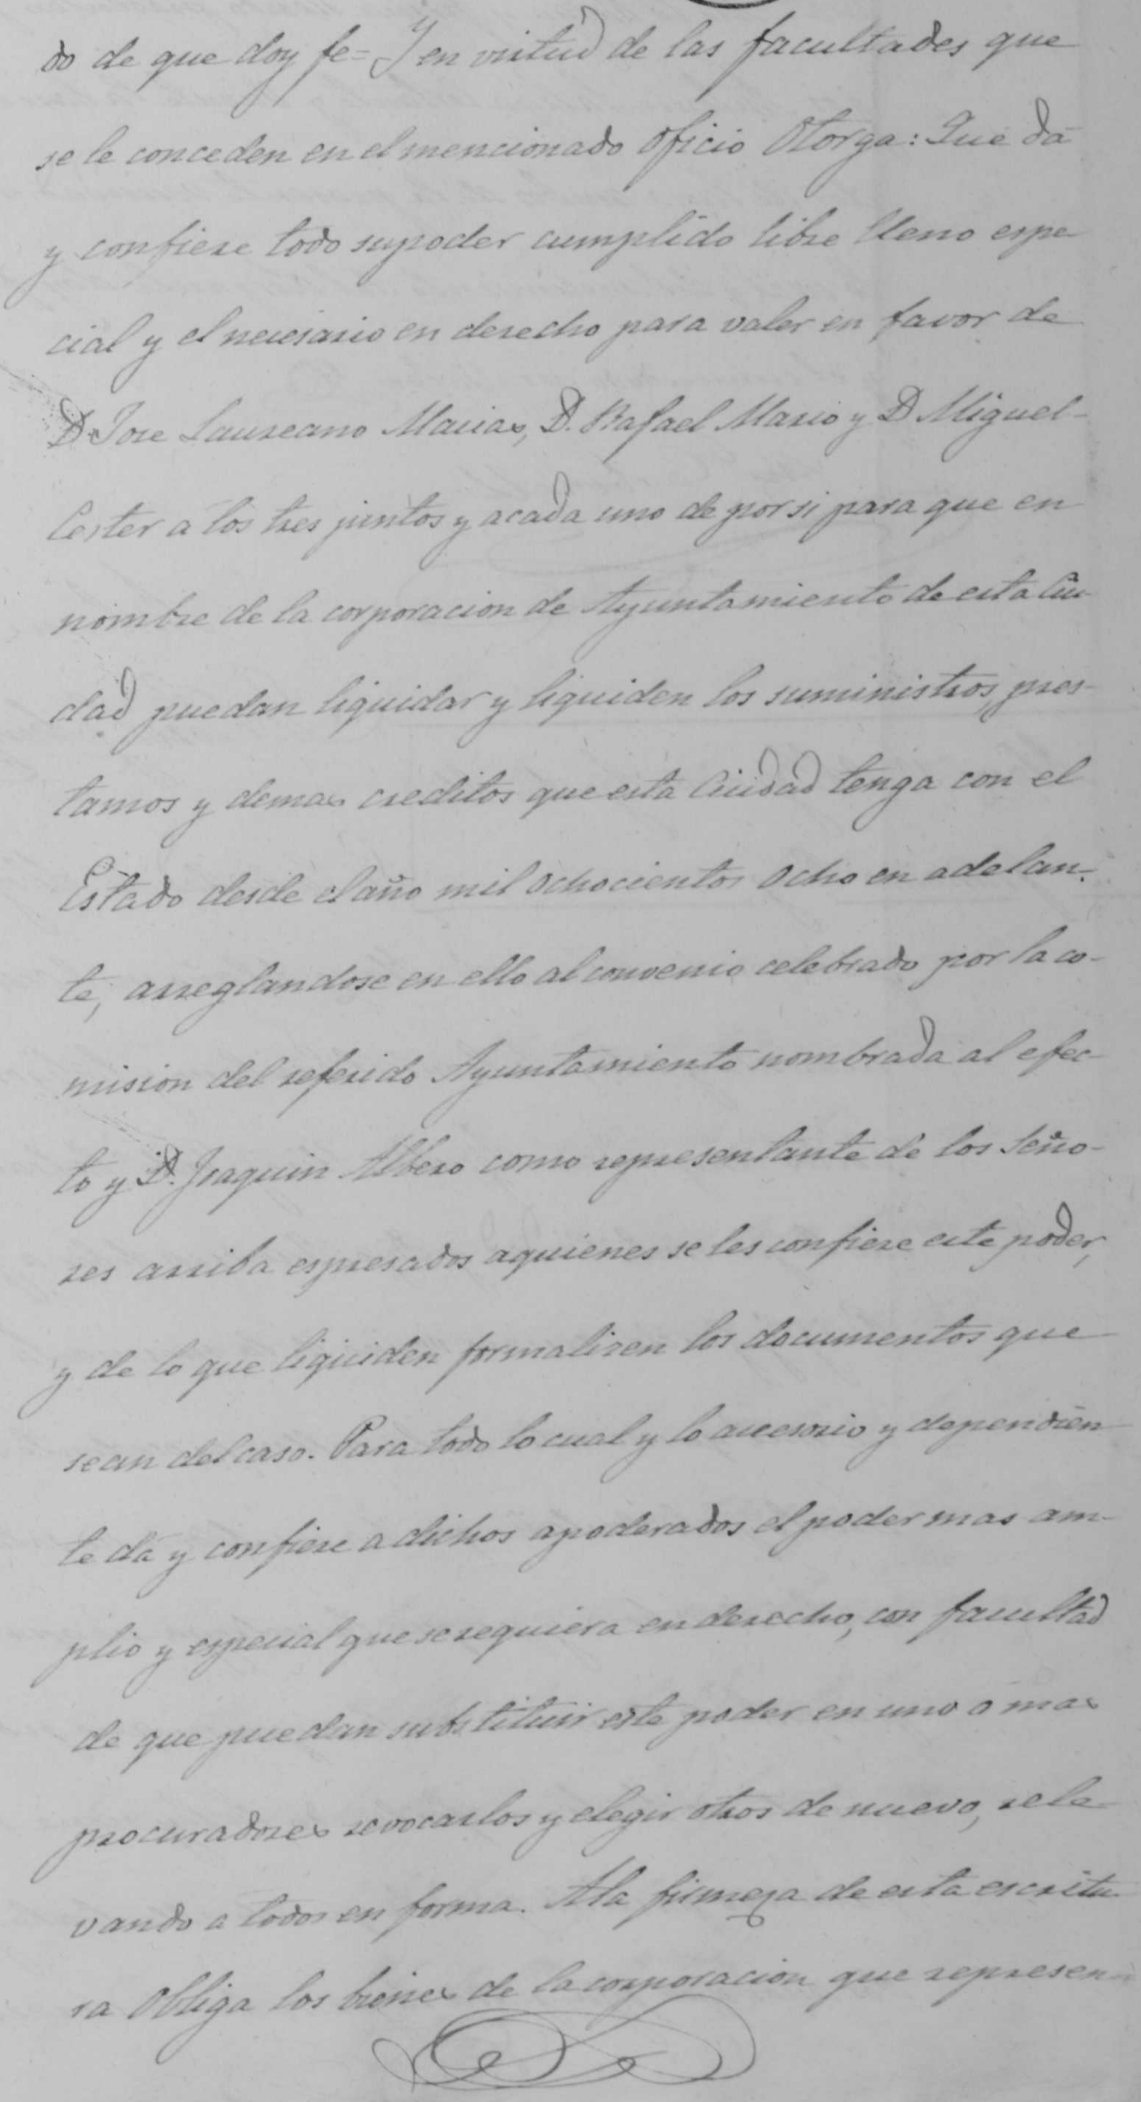 do de que doy fe= Y en virtud de las facultades que
se le conceden en el mencionado oficio Otorga: Que dá
y confiere todo su poder cumplido libre lleno espe
cial y el necesario en derecho para valer en favor de
D. Jose Laureano Macias, D. Rafael Mario y D Miguel
Cester a los tres juntos y acada uno de por si para que en
nombre de la corporacion de Ayuntamiento de esta Ciu
dad puedan liquidar y liquiden los suministros, pres-
tamos y demas creditos que esta Ciudad tenga con el
Estado desde el año mil ochocientos ocho en adelan-
te, arreglandose en ello al convenio celebrado por la co-
mision del referido Ayuntamiento nombrada al efec-
to y D. Joaquin Albero como representante de los Seño-
res arriba espresados aquienes se les confiere este poder,
y de lo que liquiden formalizen los documentos que
sean del caso. Para todo lo cual y lo accesorio y dependien
te dá y confiere a dichos apoderados el poder mas am-
plio y especial que se requiera en derecho, con facultad
de que puedan substituir este poder en uno o mas
procuradores revocarlos y elegir otros de nuevo, rele
vando a todos en forma. A la firmeza de esta escritu
ra obliga los bienes de la corporacion que represen-